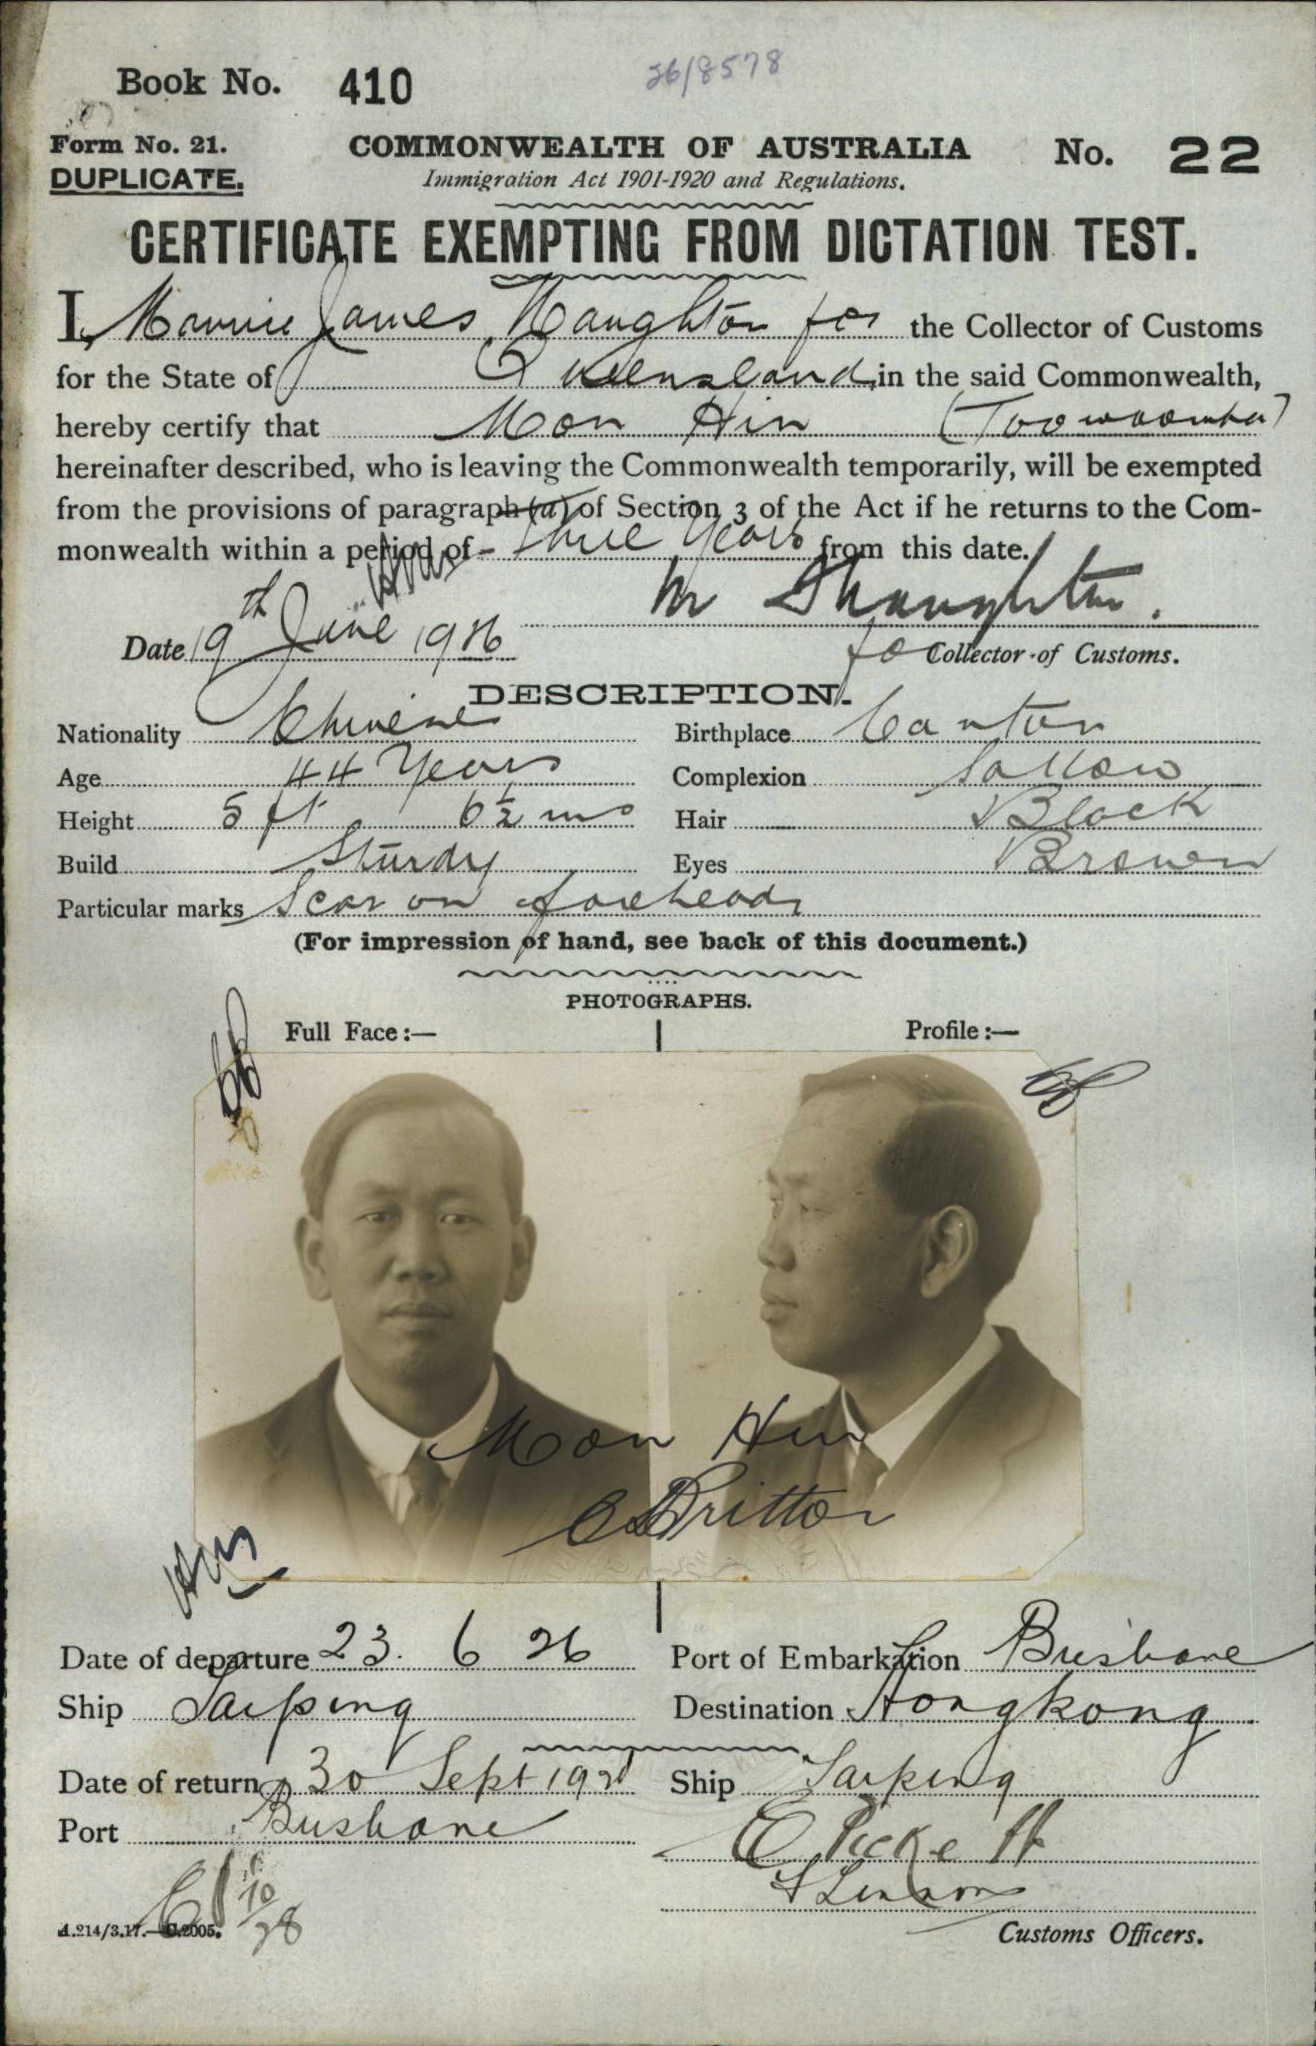 Book No. 410
26/8578
Form No. 21.
DUPLICATE.
COMMONWEALTH OF AUSTRALIA
Immigration Act 1901-1920 and Regulations.
No. 22
CERTIFICATE EXEMPTING FROM DICTATION TEST.
I, James Naughton for the Collector of Customs
for the State of Queensland in the said Commonwealth,
hereby certify that Mon Hin (Toowoomba)
hereinafter described, who is leaving the Commonwealth temporarily, will be exempted
from the provisions of paragraph (a) of Section 3 of the Act if he returns to the Com-
monwealth within a period of Three Years from this date.
Date 19th June 1926
Collector of Customs.
DESCRIPTION.
Nationality Chinese
Birthplace Canton
Age 44 Years
Complexion Sallow
Height 5 ft 6½ ins
Hair Black
Build Sturdy
Eyes Brown
Particular marks Scar on forehead
(For impression of hand, see back of this document.)
PHOTOGRAPHS.
Full Face:—
Profile:—
Mon Hin
Britton
Date of departure 23. 6 26
Port of Embarkation Brisbane
Ship Taiping
Destination Hongkong
Date of return 30 Sept 1928
Ship Taiping
Port Brisbane
10/28
A.214/3.17.—C.2005.
Customs Officers.